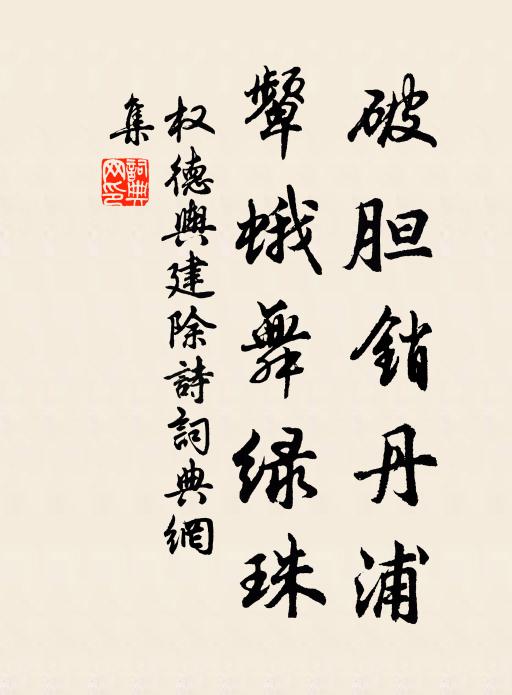 破胆銷丹浦
顰蛾舞绿珠
权德輿建除詩詞典網
集
詞典網印